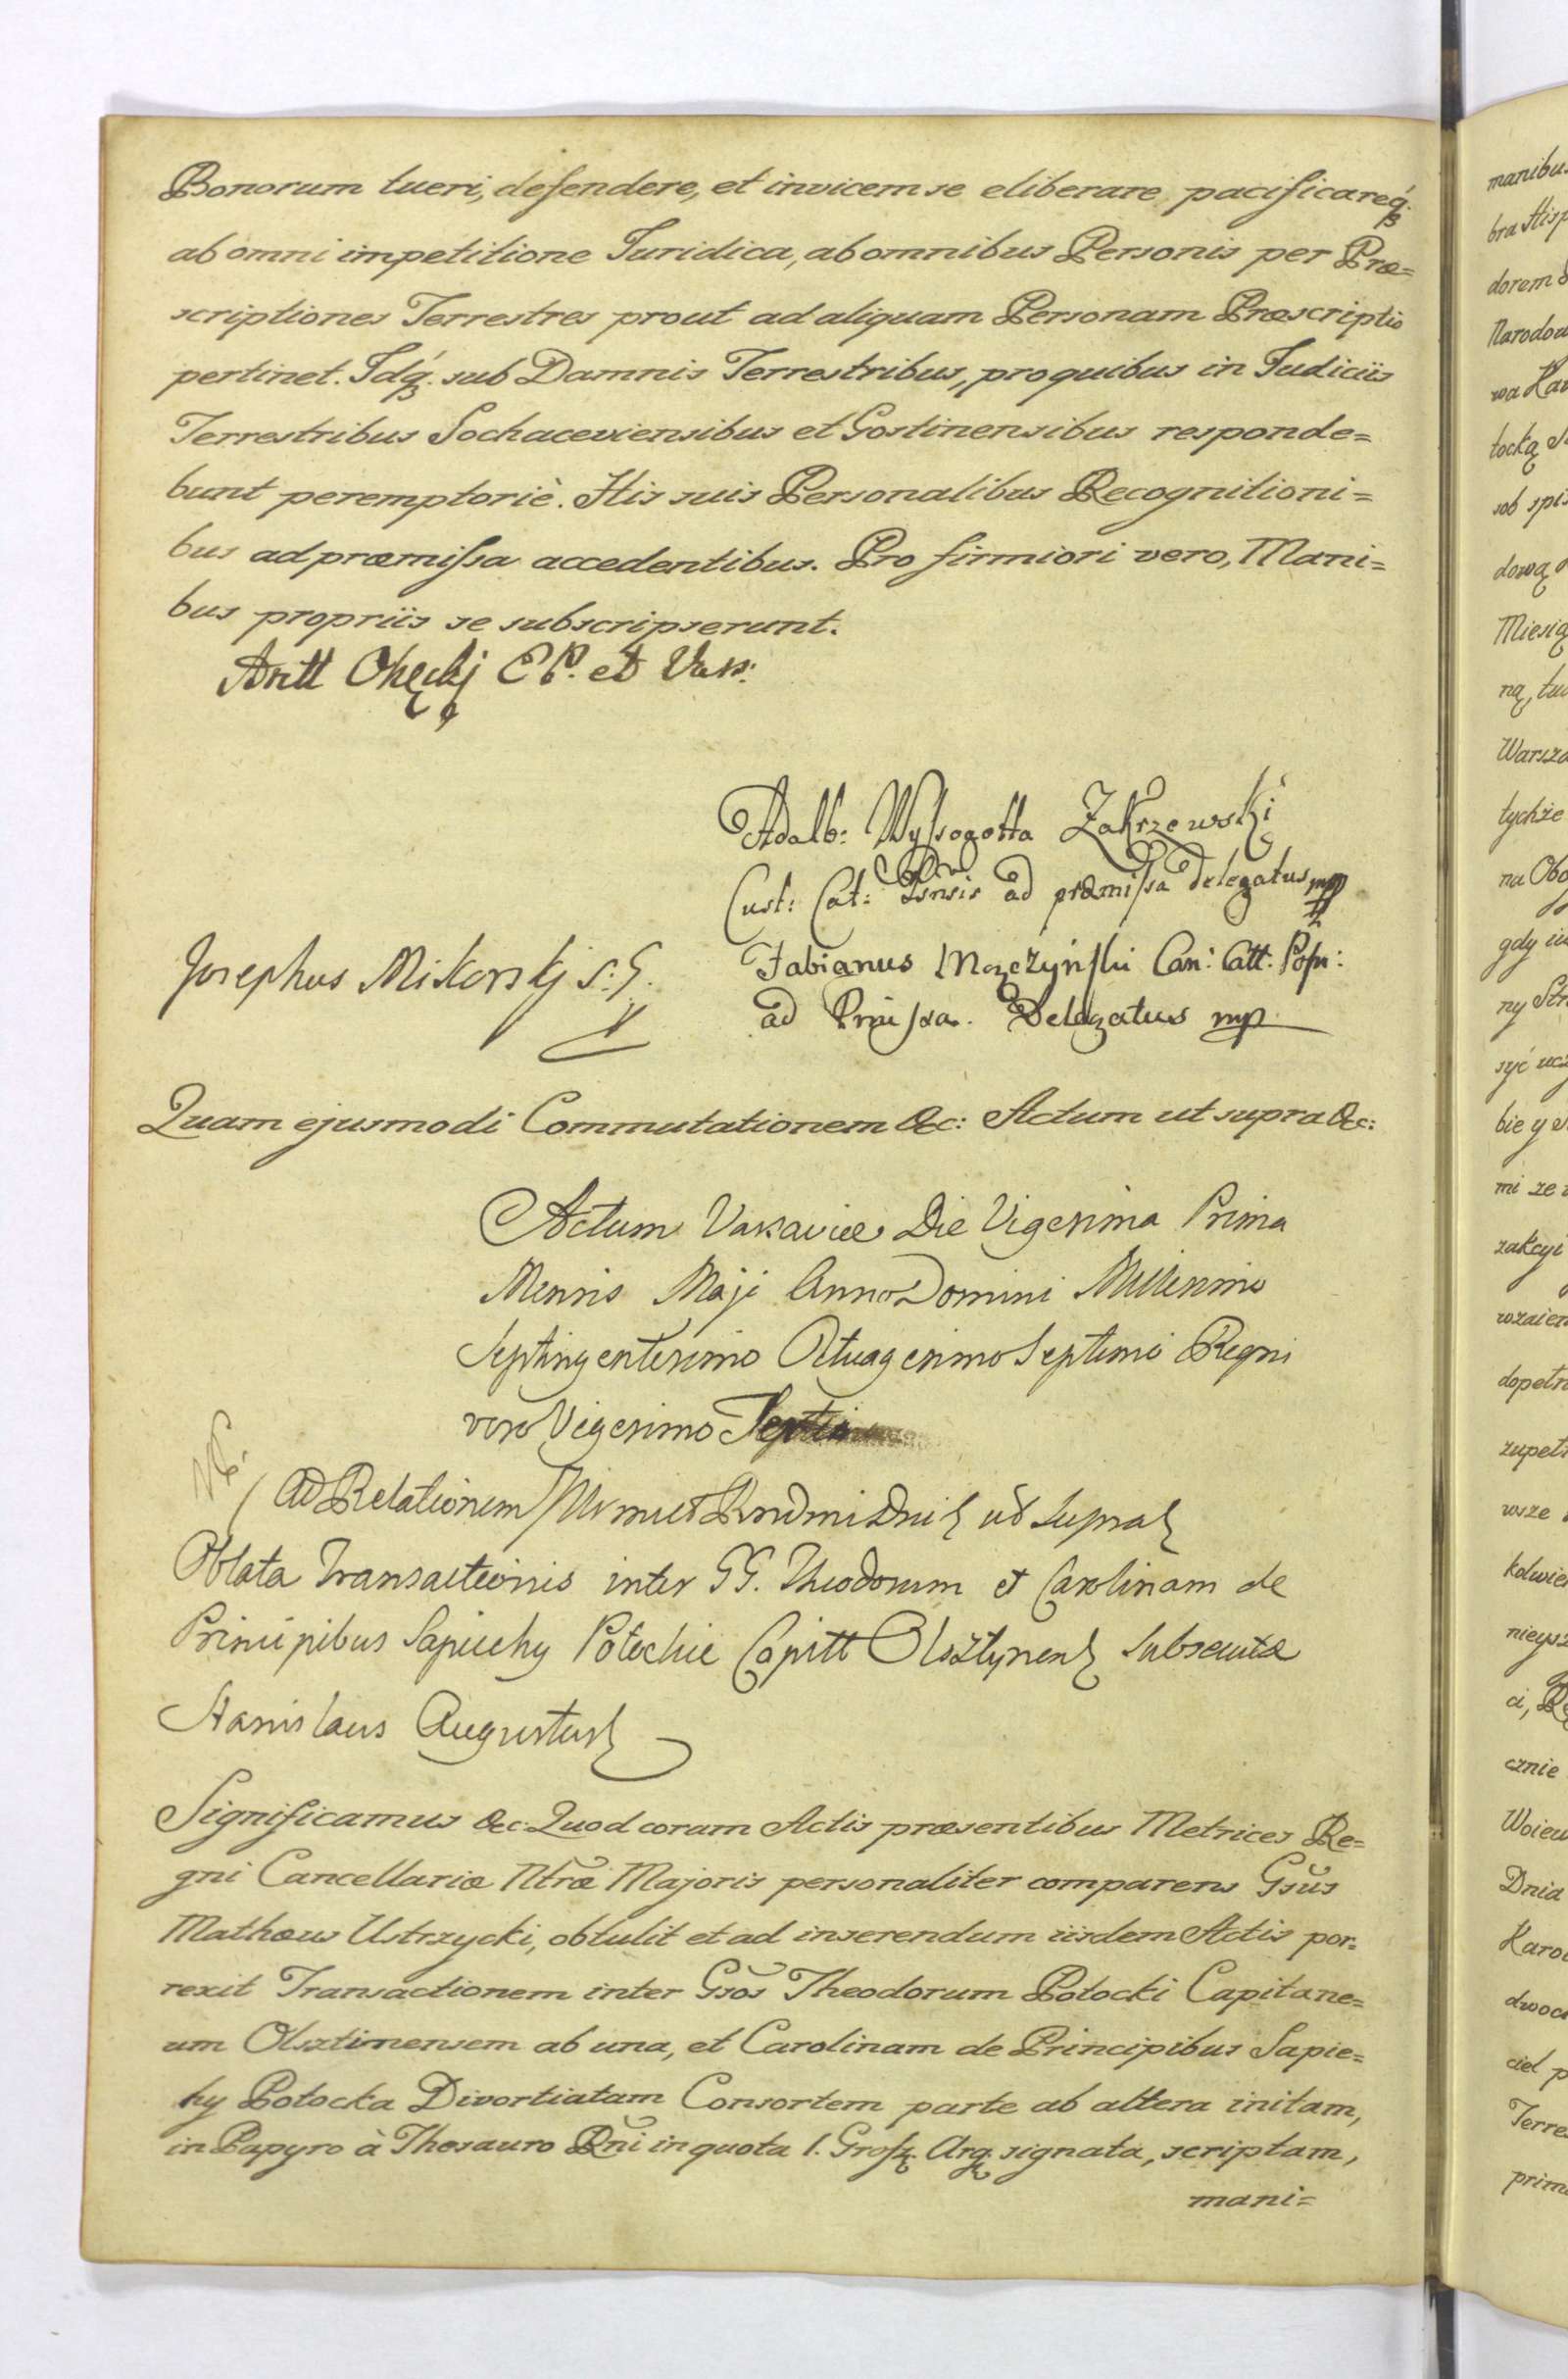 Bonorum tueri, defendere, et invicem se eliberare pacificareq́3
ab omni impetitione Juridica, ab omnibus Personis per Præ=
scriptiones Terrestres prout ad aliquam Personam Præscriptio
pertinet. Idq́3. sub Damnis Terrestribus, pro quibus in Judiciis
Terrestribus Sochaceviensibus et Gostinensibus responde=
bunt peremptoriè. His suis Personalibus Recognitioni=
bus ad præmissa accedentibus. Pro firmiori vero, Mani=
bus propriis se subscripserunt.
Antt Okęckj E P. et Vars:
Adalb: Wyssogotta Zakrzewski
Cust: Cat: Psnsis ad præmissa delegatus mpp
Josephus Mikorskj S: G.
Fabianus Moczyński Can: Catt: Posn:
ad Prmissa. Delegatus mp
Quam ejusmodi Commutationem &c: Actum ut supra &c:
Actum Varsaviæ Die Vigesima Prima
Mensis Maji Anno Domini Millesimo
Septingentesimo Octuagesimo Septimo Regni
vero Vigesimo
Ad Relationem Illrmi et Rndmi Dni ut supra
Oblata Transactionis inter GG. Theodorum et Carolinam de
Principibus Sapiehy Potockie Capitt Olsztynen subsecutæ
Stanislaus Augustus
Significamus &c. Quod coram Actis præsentibus Metrices Re=
gni Cancellariæ Ntræ Majoris personaliter comparens Gsus
Mathæus Ustrzycki, obtulit et ad inserendum iisdem Actis por=
rexit Transactionem inter Gsos Theodorum Potocki Capitane=
um Olsztimensem ab una, et Carolinam de Principibus Sapie=
hy Potocka Divortiatam Consortem parte ab altera initam,
in Papyro à Thesauro Rni in quota 1. Grosz. Arg. signata, scriptam,
mani=
manibus
bra
dorem
Narodow
wa
tocką
sob
dową
Miesią
ną,
Warsza
tychże
na
gdy
ny
syć
bie y
mi ze
zakcyi
dopełn
zupeł
wsze
nieysz
ci,
cznie
Woiew
Dnia
Karol
dwoch
ciel
Terre
prim